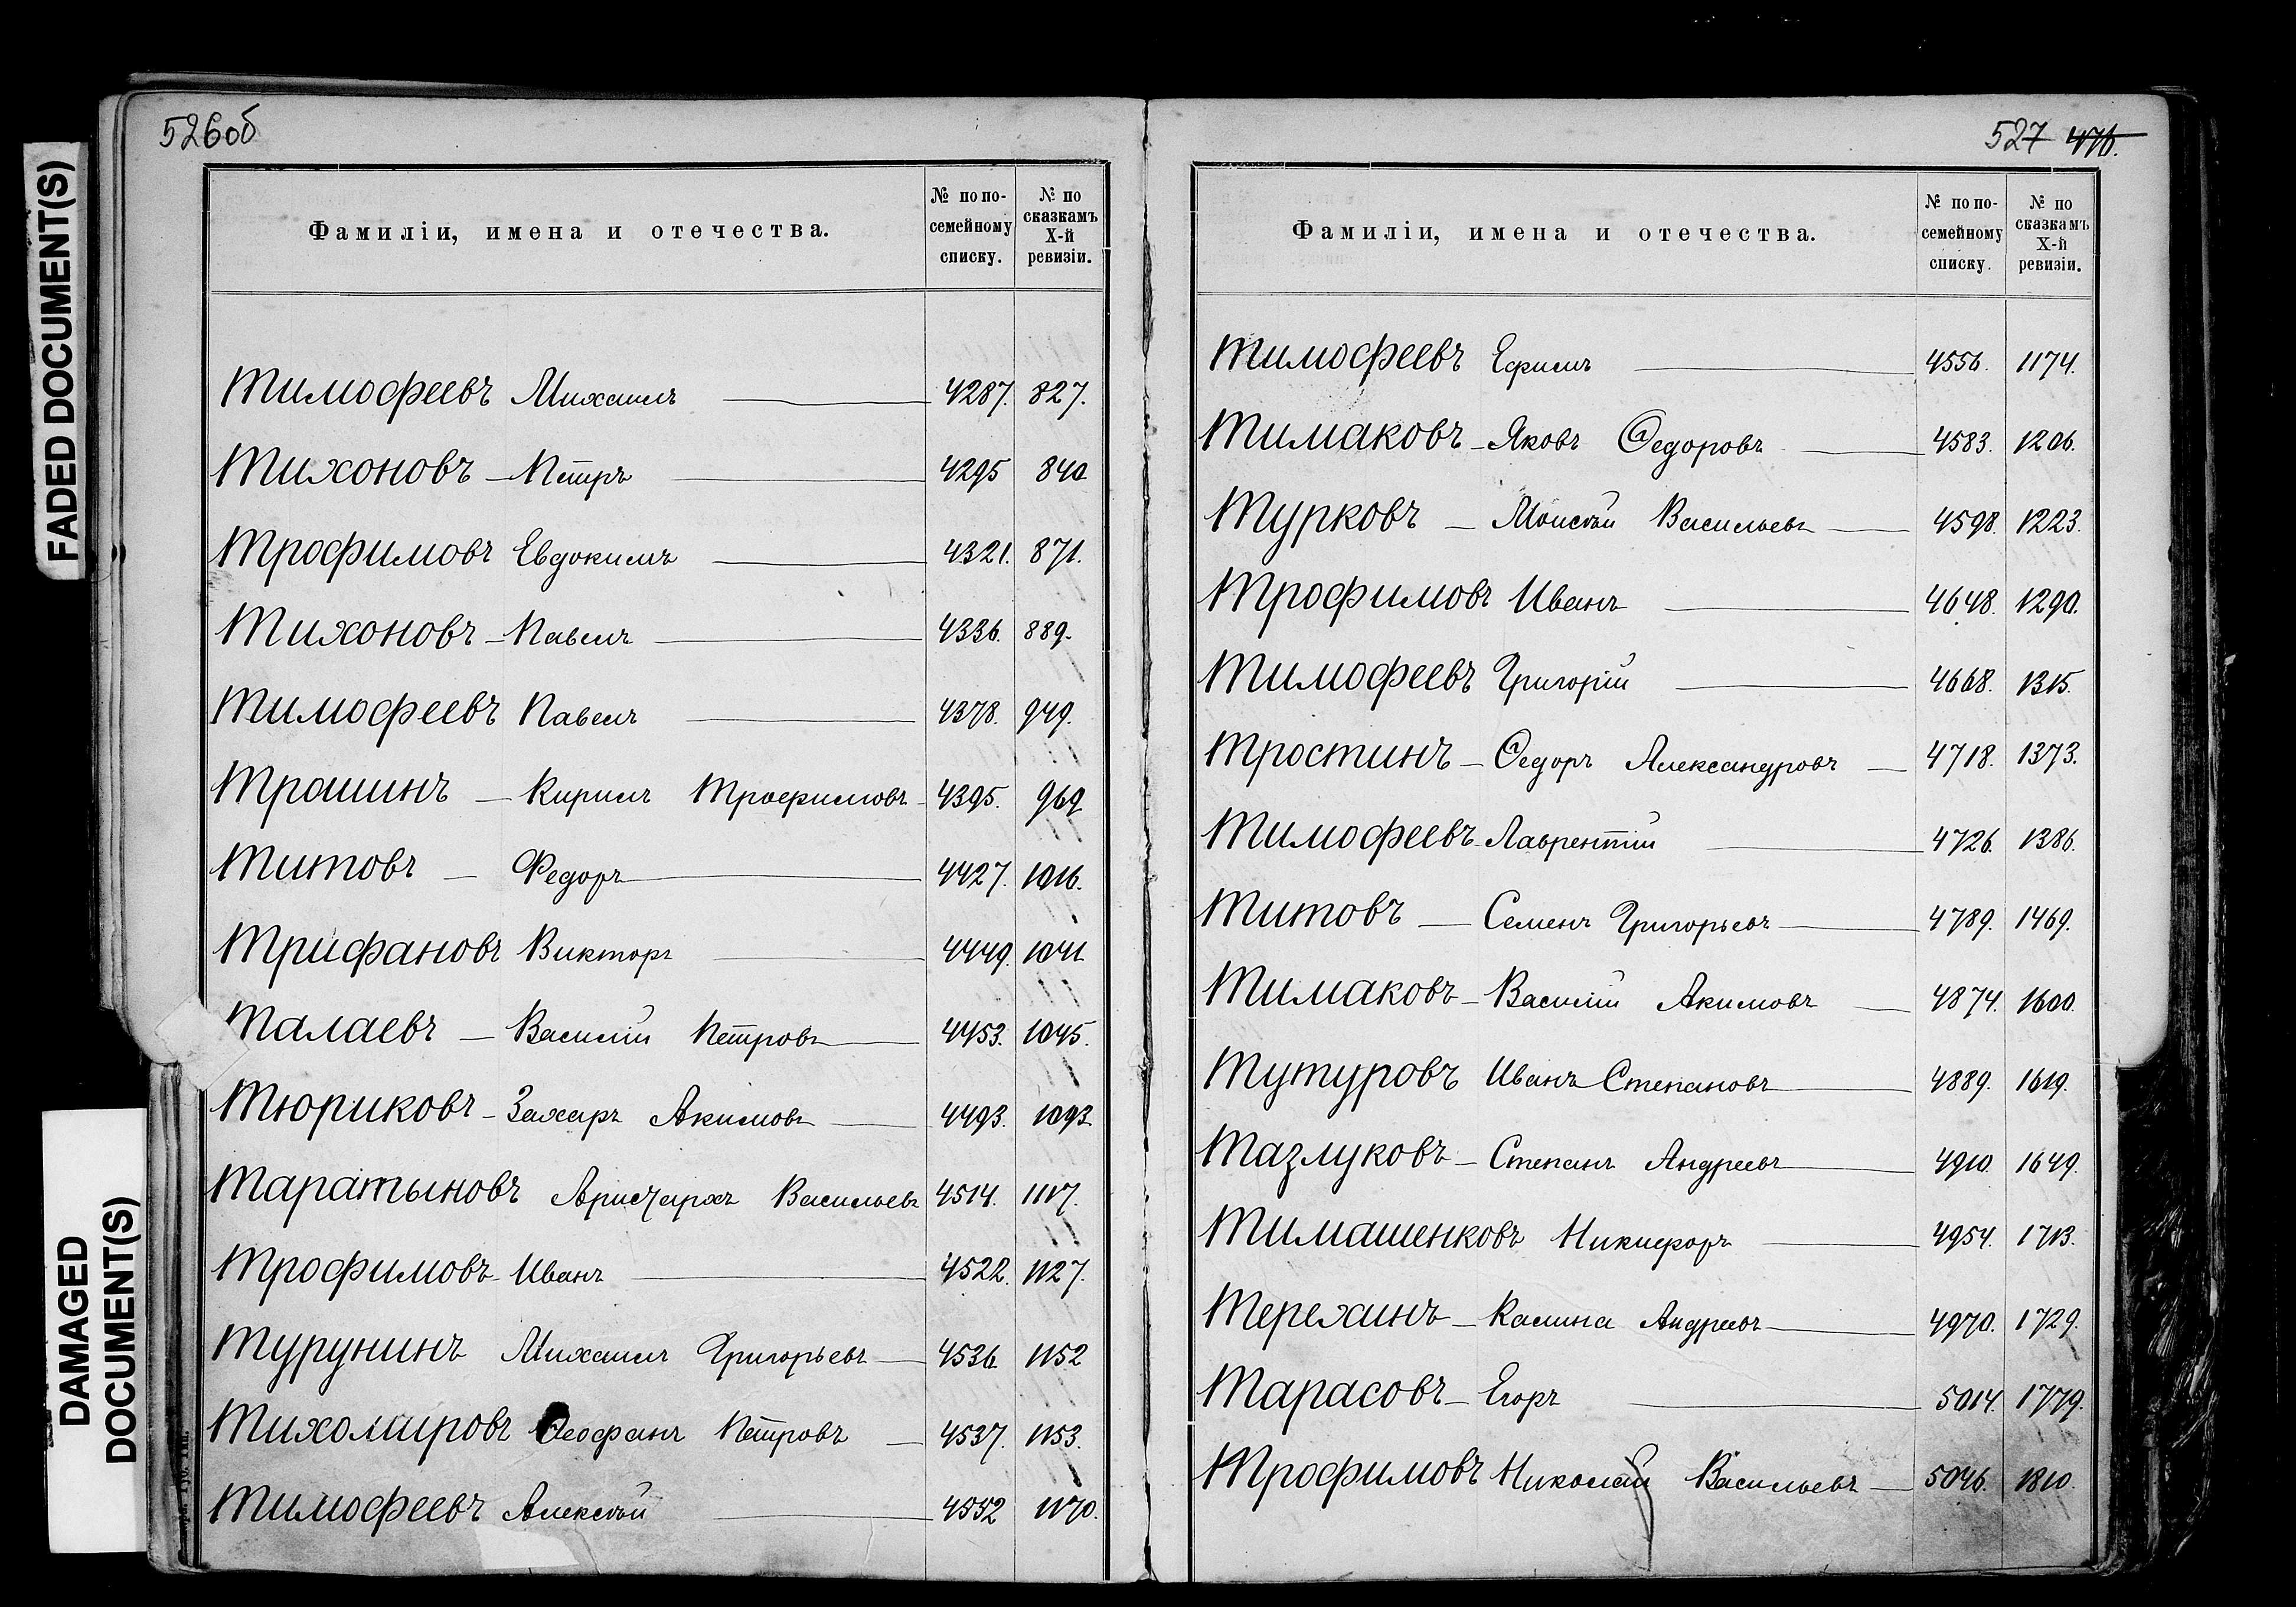 526об
Фамиліи, имена и отечества. № по по-семейному списку. № по сказкамъ X-й ревизіи.
Тимофеевъ Михаилъ 4287. 827.
Тихоновъ - Петръ 4295 840
Трофимовъ Евдокимъ 4321. 871.
Тихоновъ - Павелъ 4336. 889.
Тимофеевъ Павелъ 4378. 949.
Трашинъ - Кирилъ Трофимовъ 4395. 969
Титовъ - Федоръ 4427. 1016.
Трифановъ Викторъ 4449. 1041
Талаевъ - Василій Петровъ 4453. 1045.
Тюриковъ - Захаръ Акимовъ 4493. 1093
Таратыновъ Аристархъ Васильевъ 4514. 1117.
Трофимовъ - Иванъ 4522. 1127.
Турунинъ Михаилъ Григорьевъ 4536 1152
Тихомировъ Ѳеофанъ Петровъ 4537. 1153.
Тимофеевъ Алексѣй 4552 1170.
527 476.
Фамиліи, имена и отечества. № по по-семейному списку. № по сказкамъ X-й ревизіи.
Тимофеевъ Ефимъ 4556. 1174.
Тимаковъ - Яковъ Ѳедоровъ 4583. 1206.
Турковъ - Моисѣй Васильевъ 4598. 1223.
Трофимовъ Иванъ 4648. 1290.
Тимофеевъ Григорій 4668. 1315.
Тростинъ - Ѳедоръ Александровъ 4718. 1373.
Тимофеевъ - Лаврентій 4726. 1386.
Титовъ - Семенъ Григорьевъ 4789. 1469.
Тимаковъ - Василій Акимовъ 4874. 1600.
Тутуровъ Иванъ Степановъ 4889. 1619.
Тазлуковъ - Степанъ Андреевъ 4910. 1649.
Тимашенковъ Никифоръ 4954. 1713.
Терехинъ - Калина Андреевъ 4970. 1729.
Тарасовъ - Егоръ 5014. 1779.
Трофимовъ Николай Васильевъ 5046. 1810.
FADED DOCUMENT(S)
DAMAGED
DOCUMENT(S)